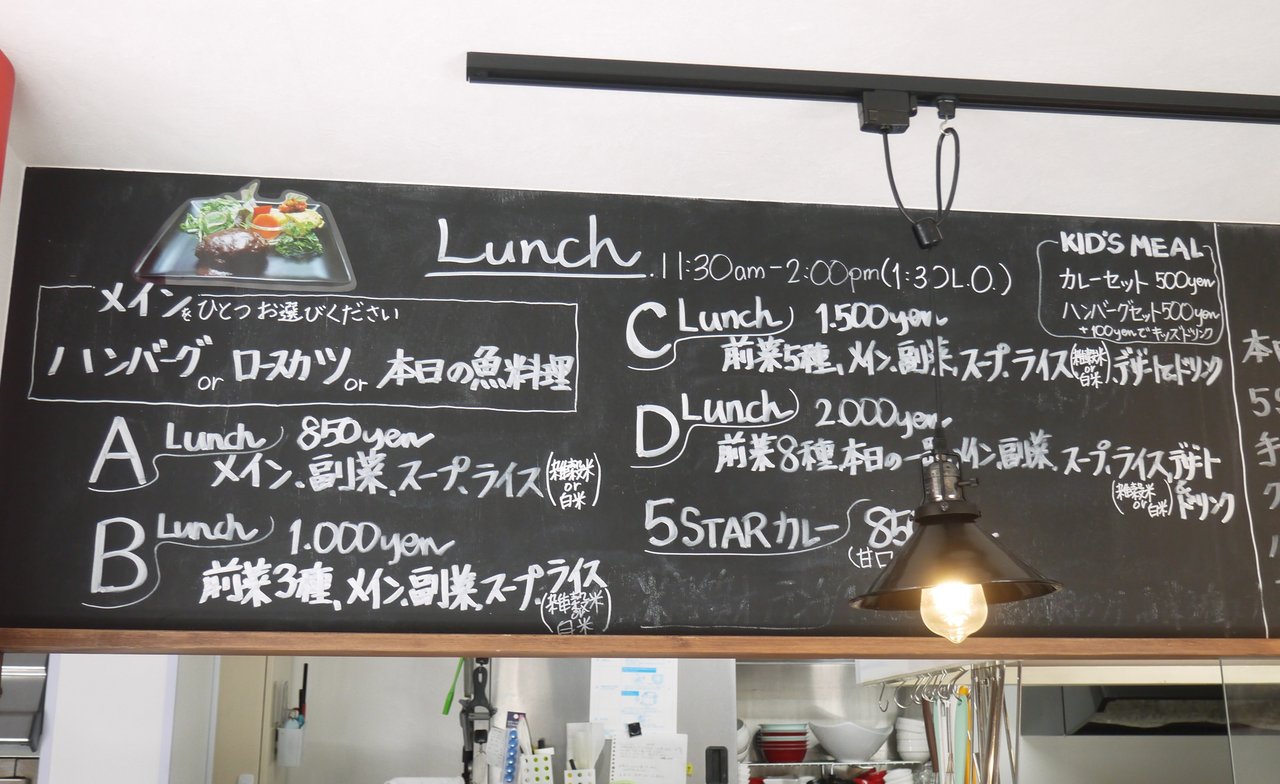 Lunch 11:30am-2:00pm(1:30L.O.)
メインをひとつお選びください
ハンバーグ or ロースカツ or 本日の魚料理
A Lunch 850yen
メイン、副菜、スープ、ライス(雑穀米 or 白米)
B Lunch 1.000yen
前菜3種、メイン、副菜、スープ、ライス(雑穀米 or 白米)
C Lunch 1.500yen
前菜5種、メイン、副菜、スープ、ライス(雑穀米 or 白米)、デザートとドリンク
D Lunch 2.000yen
前菜8種、本日の一品、メイン、副菜、スープ、ライス(雑穀米 or 白米)、デザート&ドリンク
5STARカレー
(甘口
KID'S MEAL
カレーセット 500yen
ハンバーグセット500yen
+100yenでキッズドリンク